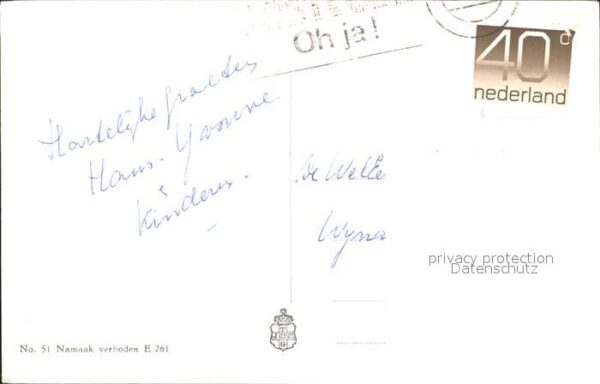 Oh ja!
40 c
nederland
Hartelijke groeten
Hans - Yvonne
&
Kinderen.
De Wette
Wyna
privacy protection
Datenschutz
No. 51 Namaak verboden E 261